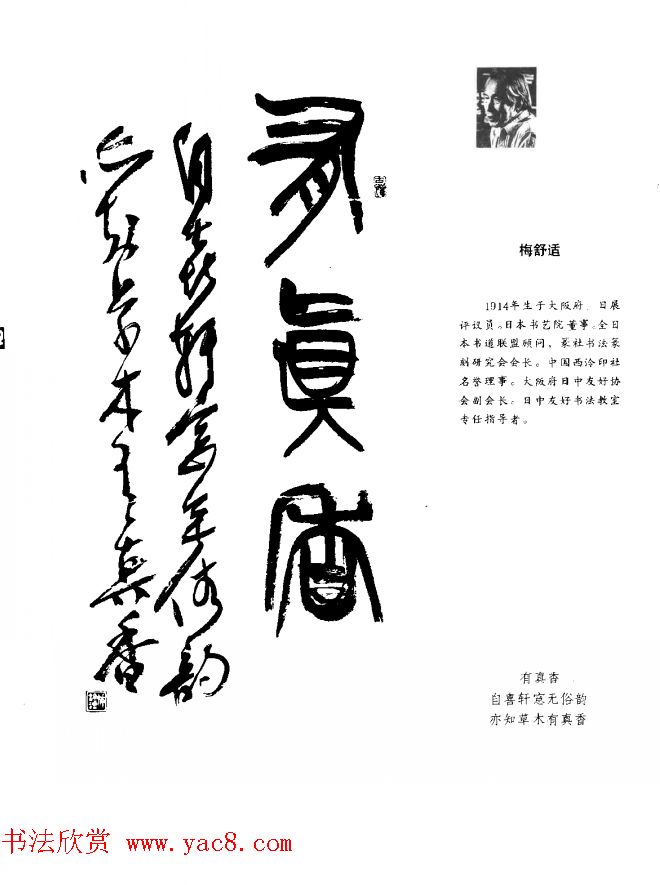 有真香
自喜轩窗无俗韵
亦知草木有真香
梅舒适
1914年生于大阪府。日展
评议员。日本书艺院董事。全日
本书道联盟顾问、篆社书法篆
刻研究会会长。中国西泠印社
名誉理事。大阪府日中友好协
会副会长。日中友好书法教室
专任指导者。
有真香
自喜轩窓无俗韵
亦知草木有真香
书法欣赏 www.yac8.com